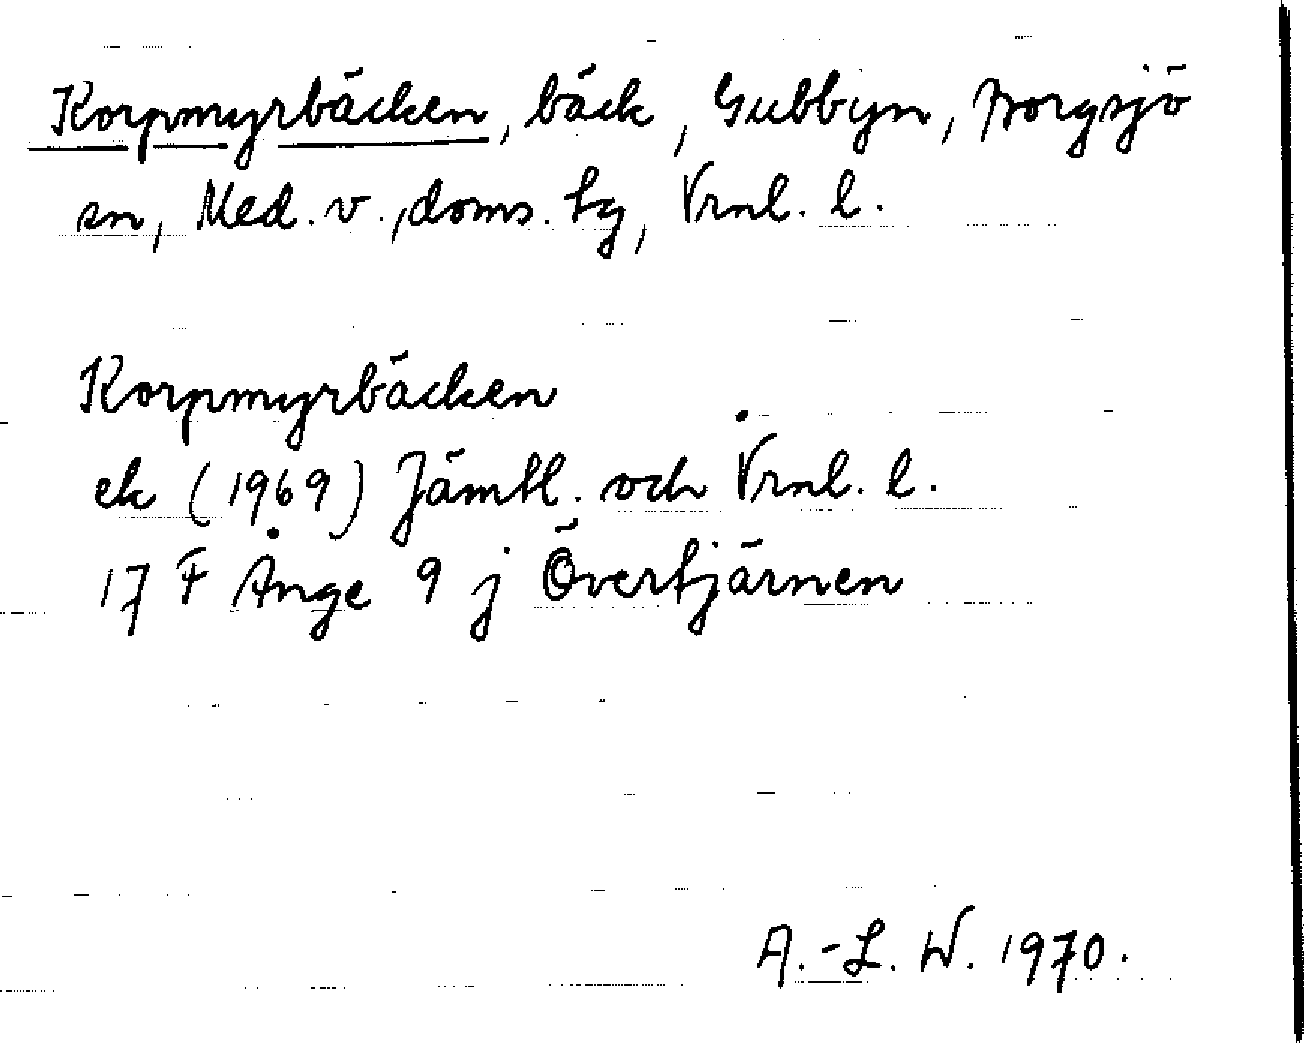 Korpmyrbäcken, bäck, Gubbyn, Borgsjö
sn, Med. v., doms. tg, Vrnl. l.
Korpmyrbäcken
ek (1969) Jämtl. och Vrnl. l.
17 F Ånge 9 j Övertjärnen
A.-L. W. 1970.